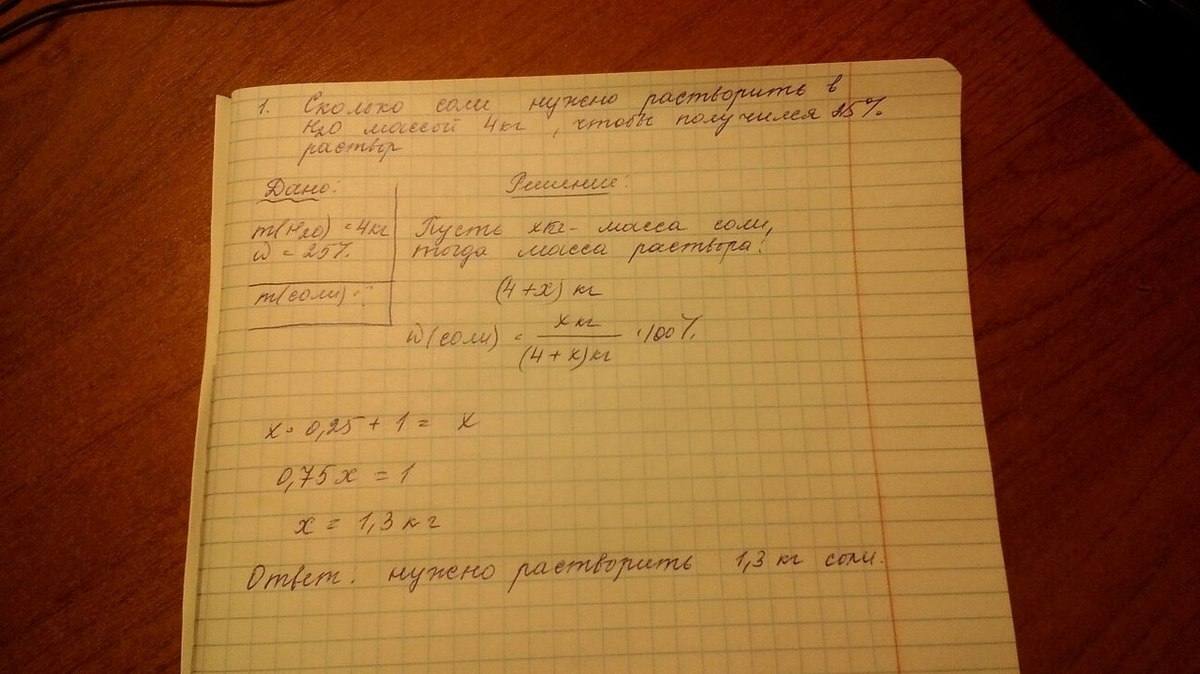 1. Сколько соли нужно растворить в
H2O массой 4кг, чтобы получился 25%
раствор
Дано:
Решение:
m(H2O) = 4кг
ω = 25%
m(соли) - ?
Пусть xкг - масса соли,
тогда масса раствора:
(4+x) кг
ω(соли) = x кг / (4+x)кг · 100%
x · 0,25 + 1 = x
0,75x = 1
x = 1,3 кг
Ответ. нужно растворить 1,3 кг соли.